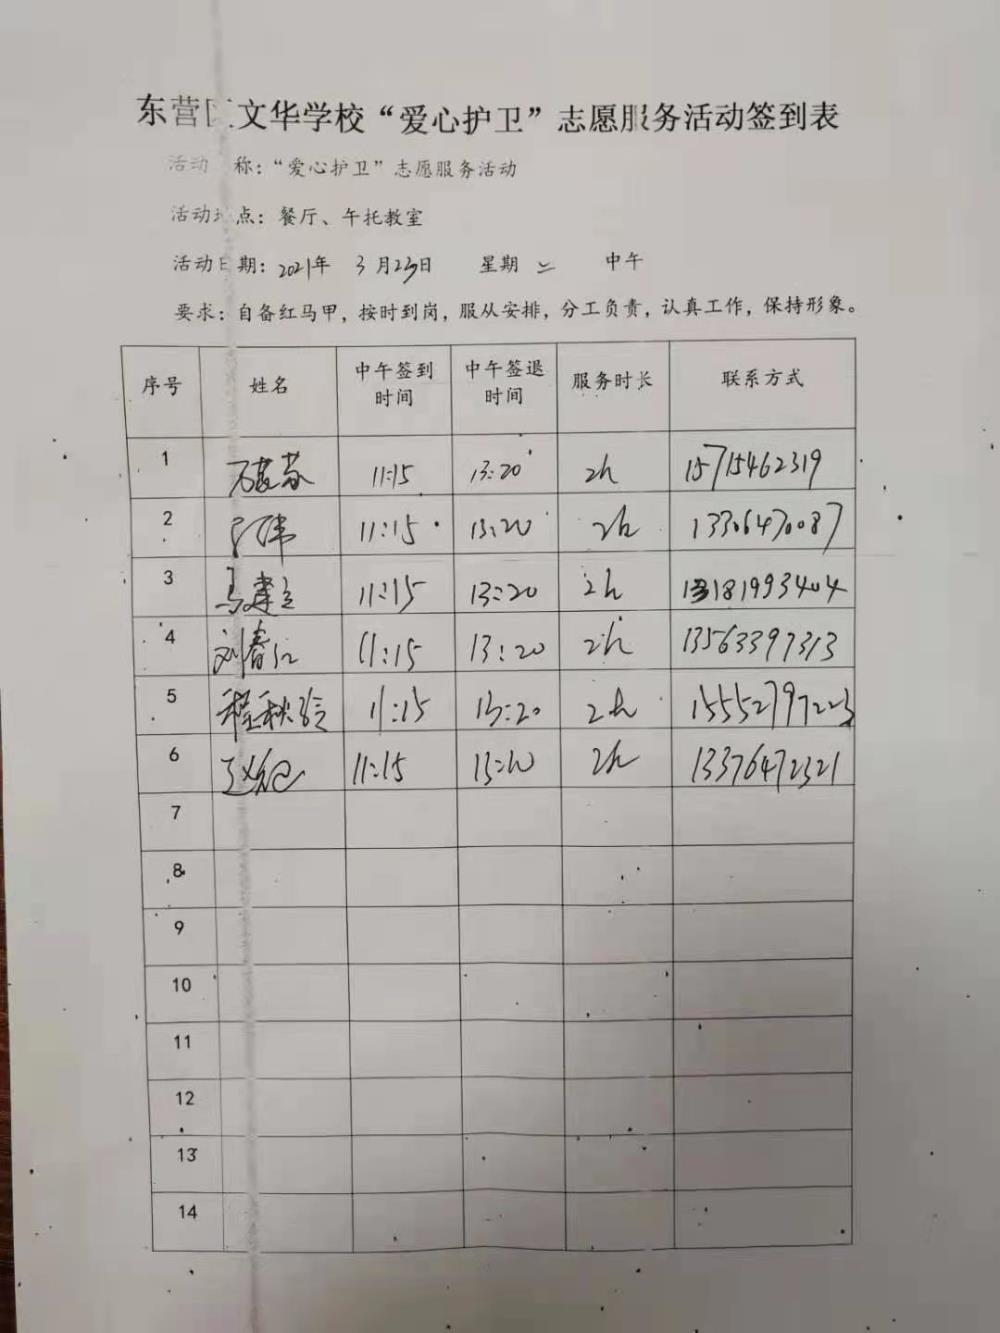 东营区文华学校“爱心护卫”志愿服务活动签到表
活动 称：“爱心护卫”志愿服务活动
活动地点：餐厅、午托教室
活动日期：2021年 3月23日 星期二 中午
要求：自备红马甲，按时到岗，服从安排，分工负责，认真工作，保持形象。
序号 姓名 中午签到时间 中午签退时间 服务时长 联系方式
1 11:15 13:20 2h 15715462319
2 11:15 13:20 2h 13306470087
3 马建立 11:15 13:20 2h 13181993404
4 刘春江 11:15 13:20 2h 13563397313
5 程秋玲 11:15 13:20 2h 15552797223
6 11:15 13:20 2h 13376472321
7
8
9
10
11
12
13
14